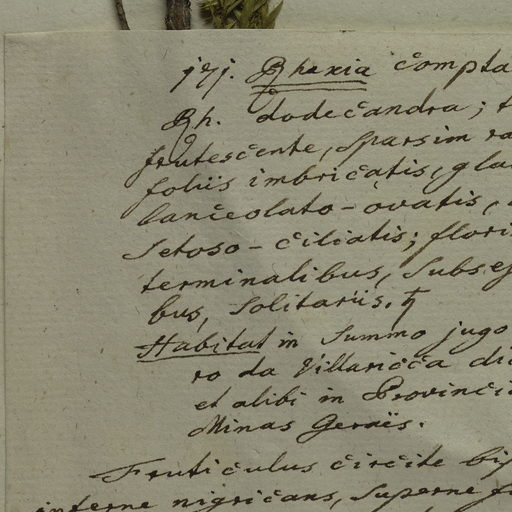 171. Rhexia compta
Rh. dodecandra;
frutescente, sparsim
foliis imbricatis,
lanceolato-ovatis,
setoso-ciliatis;
terminalibus,
bus, solitariis. ♄
Habitat in summo jugo
ro da Villaricca
et alibi in
Minas Geraës.
Fruticulus circite
interne nigricans, superne